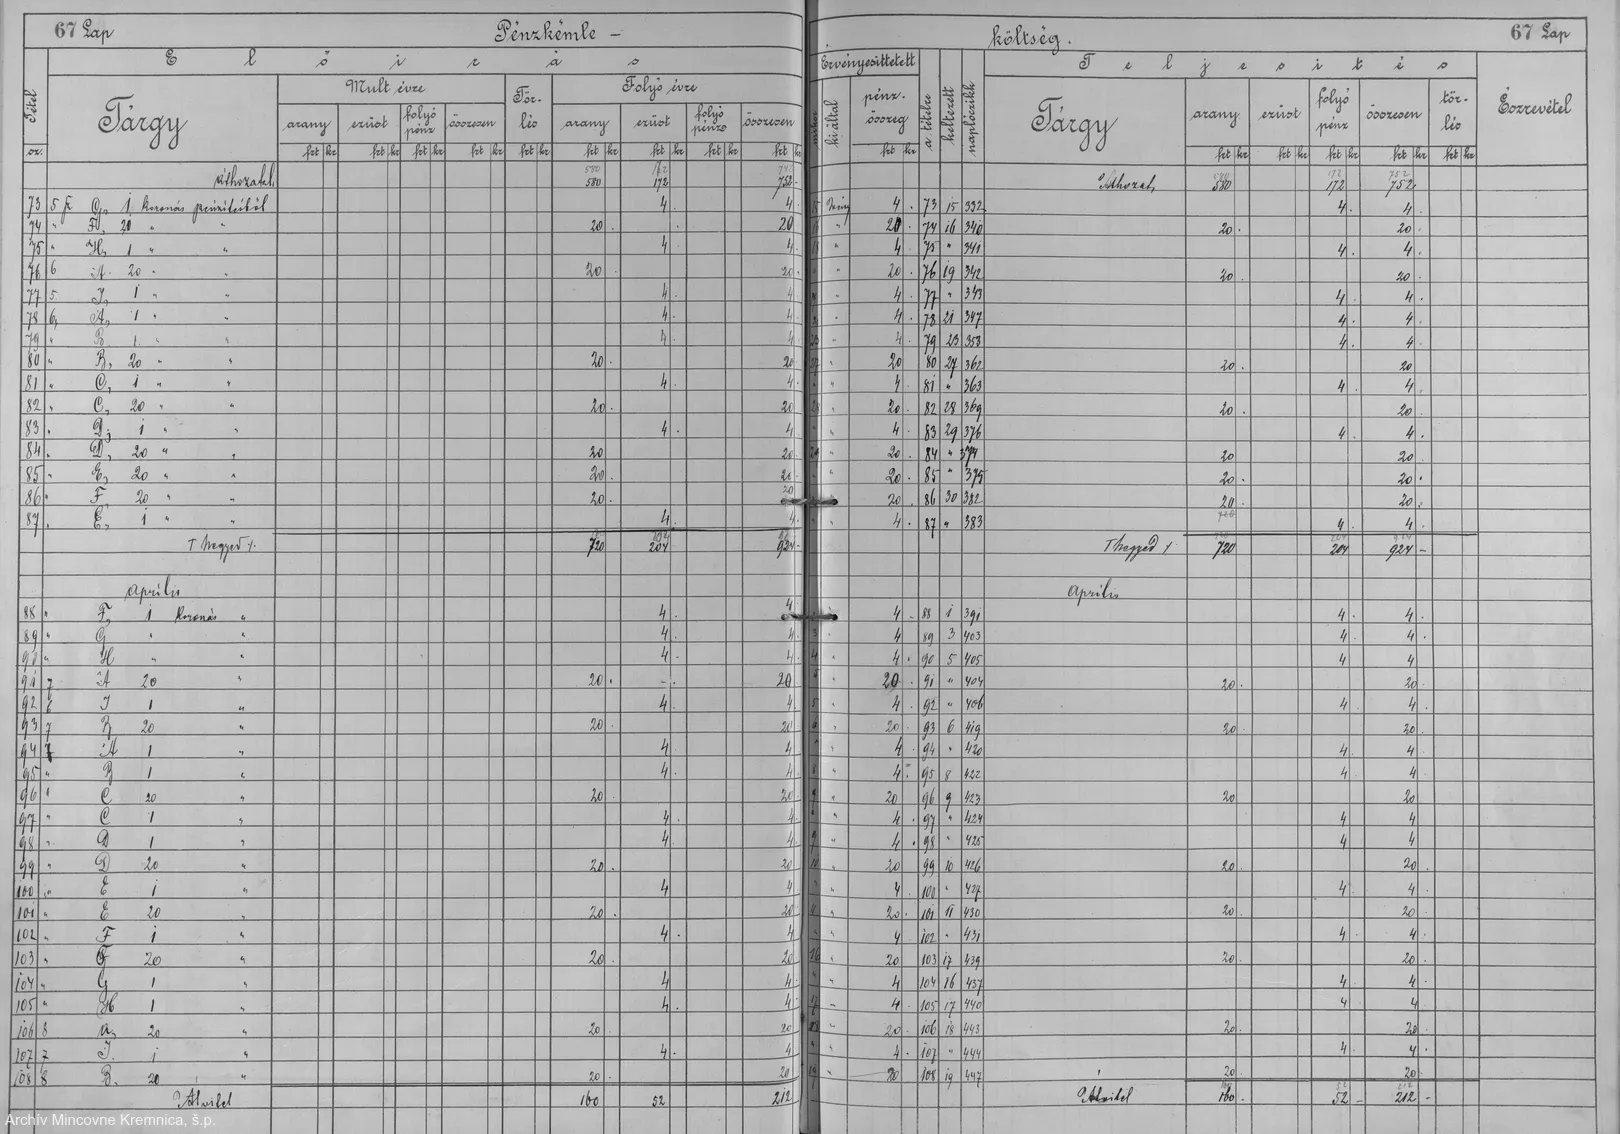 67 Lap Pénzkémle –
Előirás
Tétel sz. Tárgy Mult évre Törlés Folyó évre
arany ezüst folyó pénz összesen arany ezüst folyó pénz összesen
frt kr frt kr frt kr frt kr frt kr frt kr frt kr frt kr frt kr
Áthozatal 580 172 752
73 5 G, 1 koronás pénzekből 4 4
74 " F, 20 " " 20 20
75 " H, 1 " " 4 4
76 6 A 20 " " 20 20
77 5 J, 1 " " 4 4
78 6, A, 1 " " 4 4
79 " B 1 " " 4 4
80 " B, 20 " " 20 20
81 " C, 1 " " 4 4
82 " C, 20 " " 20 20
83 " D, 1 " " 4 4
84 " D, 20 " " 20 20
85 " E, 20 " " 20 20
86 " F 20 " " 20 20
87 " E, 1 " " 4 4
I negyed 720 204 924
Április
88 " F, 1 koronás " 4 4
89 " G " " 4 4
90 " H " " 4 4
91 7 A 20 " 20 20
92 6 J 1 " 4 4
93 7 B 20 " 20 20
94 7 A 1 " 4 4
95 " B 1 " 4 4
96 " C 20 " 20 20
97 " C 1 " 4 4
98 " D 1 " 4 4
99 " D 20 " 20 20
100 " E 1 " 4 4
101 " E 20 " 20 20
102 " F 1 " 4 4
103 " F 20 " 20 20
104 " G 1 " 4 4
105 " H 1 " 4 4
106 8 A, 20 " 20 20
107 7 J. 1 " 4 4
108 8 B. 20 " 20 20
Átvitel 160 52 212
költség. 67 Lap
Érvényesíttetett Teljesítés
mikor ki által pénzösszeg a tételre keltezett naplóczikk Tárgy arany ezüst folyó pénz összesen törlés Észrevétel
frt kr frt kr frt kr frt kr frt kr frt kr
Áthozat 580 172 752
4 73 15 332 4 4
20 74 16 340 20 20
4 75 " 341 4 4
20 76 19 342 20 20
4 77 " 343 4 4
4 78 21 347 4 4
4 79 23 353 4 4
20 80 27 362 20 20
4 81 " 363 4 4
20 82 28 369 20 20
4 83 29 376 4 4
20 84 " 374 20 20
20 85 " 375 20 20
20 86 30 382 20 20
4 87 " 383 4 4
I negyed 720 204 924
Április
4 88 1 391 4 4
4 89 3 403 4 4
4 90 5 405 4 4
20 91 " 404 20 20
4 92 " 406 4 4
20 93 6 419 20 20
4 94 " 420 4 4
4 95 8 422 4 4
20 96 9 423 20 20
4 97 " 424 4 4
4 98 " 425 4 4
20 99 10 426 20 20
4 100 " 427 4 4
20 101 11 430 20 20
4 102 " 431 4 4
20 103 17 439 20 20
4 104 16 437 4 4
4 105 17 440 4 4
20 106 18 443 20 20
4 107 " 444 4 4
20 108 19 447 20 20
Átvitel 160 52 212
Archív Mincovne Kremnica, š.p.